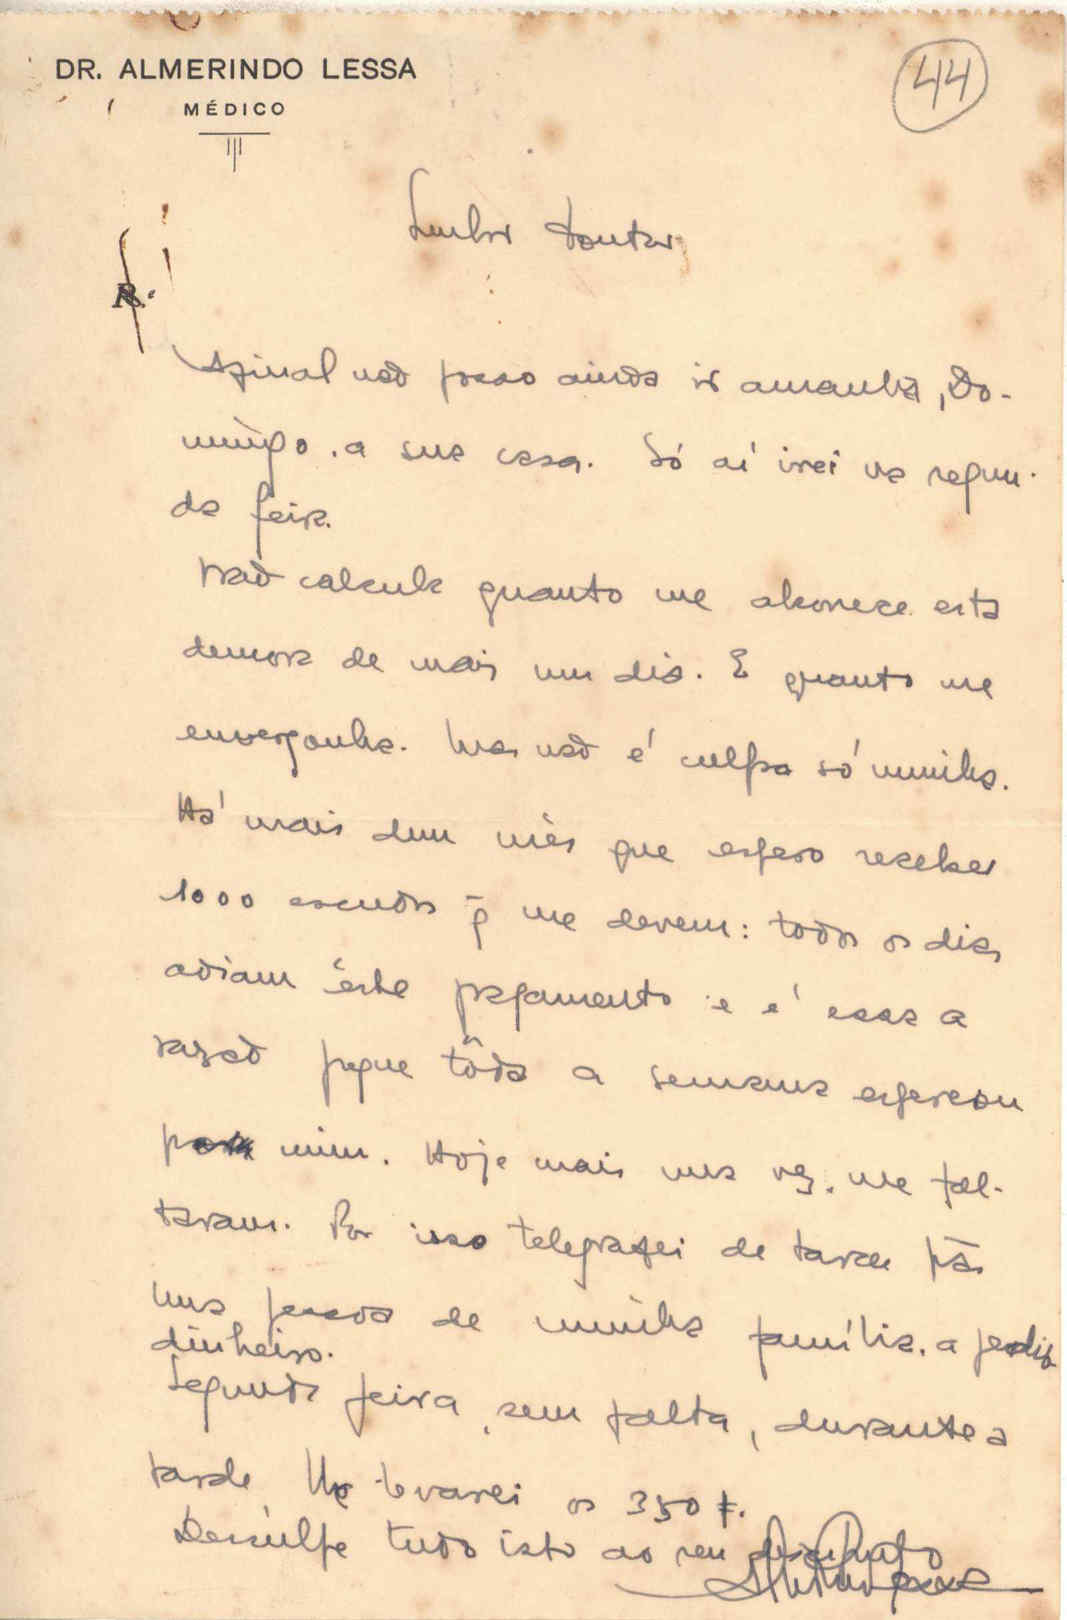 DR. ALMERINDO LESSA
MÉDICO
44
Senhor Doutor
R.
Afinal não posso ainda ir amanhã, Do-
mingo, a sua casa. Só aí irei na segun-
da feira.
Não calcula quanto me aborrece esta
demora de mais um dia. E quanto me
envergonha. Mas não é culpa só minha.
Há mais dum mês que espero receber
1000 escudos q̃ me devem: todos os dias
adiam êste pagamento e é essa a
razão pqque tôda a semana esperou
por mim. Hoje mais uma vez, me fal-
taram. Por isso telegrafei de tarde pª
uma pessoa de minha família, a pedir
dinheiro.
Segunda feira, sem falta, durante a
tarde, lhe levarei os 350$.
Desculpe tudo isto ao seu